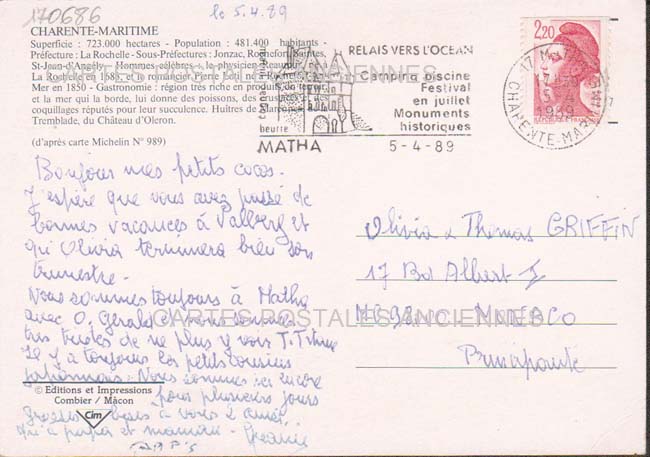 170686
le 5.4.89
CHARENTE-MARITIME
Superficie : 723.000 hectares - Population : 481.400 habitants -
Préfecture : La Rochelle - Sous-Préfectures : Jonzac, Rochefort, Saintes,
St-Jean-d'Angély - Hommes célèbres : le physicien Réaumur né à
La Rochelle en 1683, le romancier Pierre Loti né à Rochefort
Mer en 1850 - Gastronomie : région très riche en produits de la terre
et la mer qui la borde, lui donne des poissons, des crustacés et des
coquillages réputés pour leur succulence. Huîtres de Marennes,
Tremblade, du Château d'Oleron.
(d'après carte Michelin N° 989)
CARTES POSTALES ANCIENNES
beurre
MATHA
RELAIS VERS L'OCEAN
Camping piscine
Festival
en juillet
Monuments
historiques
5-4-89
2,20
17
1989
CHARENTE-MARITIME
Bonjour mes petits cocos.
J'espère que vous avez passé de
bonnes vacances à Valberg et
qu'Olivia terminera bien son
trimestre.
Nous sommes toujours à Matha
avec O. Gérald, nous sommes
très tristes de ne plus y voir T. Titine
Il y a toujours les petits cousins
Nous sommes ici encore
pour plusieurs jours
Grosses bises à vous 2 ainsi
qu'à papa et maman.
Olivia & Thomas GRIFFIN
17 Bd Albert I
MC98000 MONACO
Principauté
CARTES POSTALES ANCIENNES
© Editions et Impressions
Combier / Mâcon
Cim